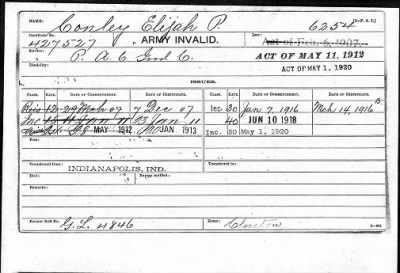 [3-P. A. D.]
NAME: Conley Elijah P. 6254
Certificate No. 427527 ARMY INVALID. Law: Act of Feb. 6, 1907
Service: P. A. C Ind C. ACT OF MAY 11, 1912
Disability: ACT OF MAY 1, 1920
ISSUES.
CLASS. RATE. DATE OF COMMENCEMENT. DATE OF CERTIFICATE. CLASS. RATE. DATE OF COMMENCEMENT. DATE OF CERTIFICATE.
12- 29 Mch 07 7 Dec 07 Inc. 30 Jan 7, 1916 Mch 14, 1916
Inc 15 Jan 11 23 Jan 11 40 JUN 10 1918
MAY 1912 JAN 1913 Inc. 50 May 1, 1920
Transferred from INDIANAPOLIS, IND. Transferred to
Died:
Former Roll No. G.L. 4846 Home: Clinton